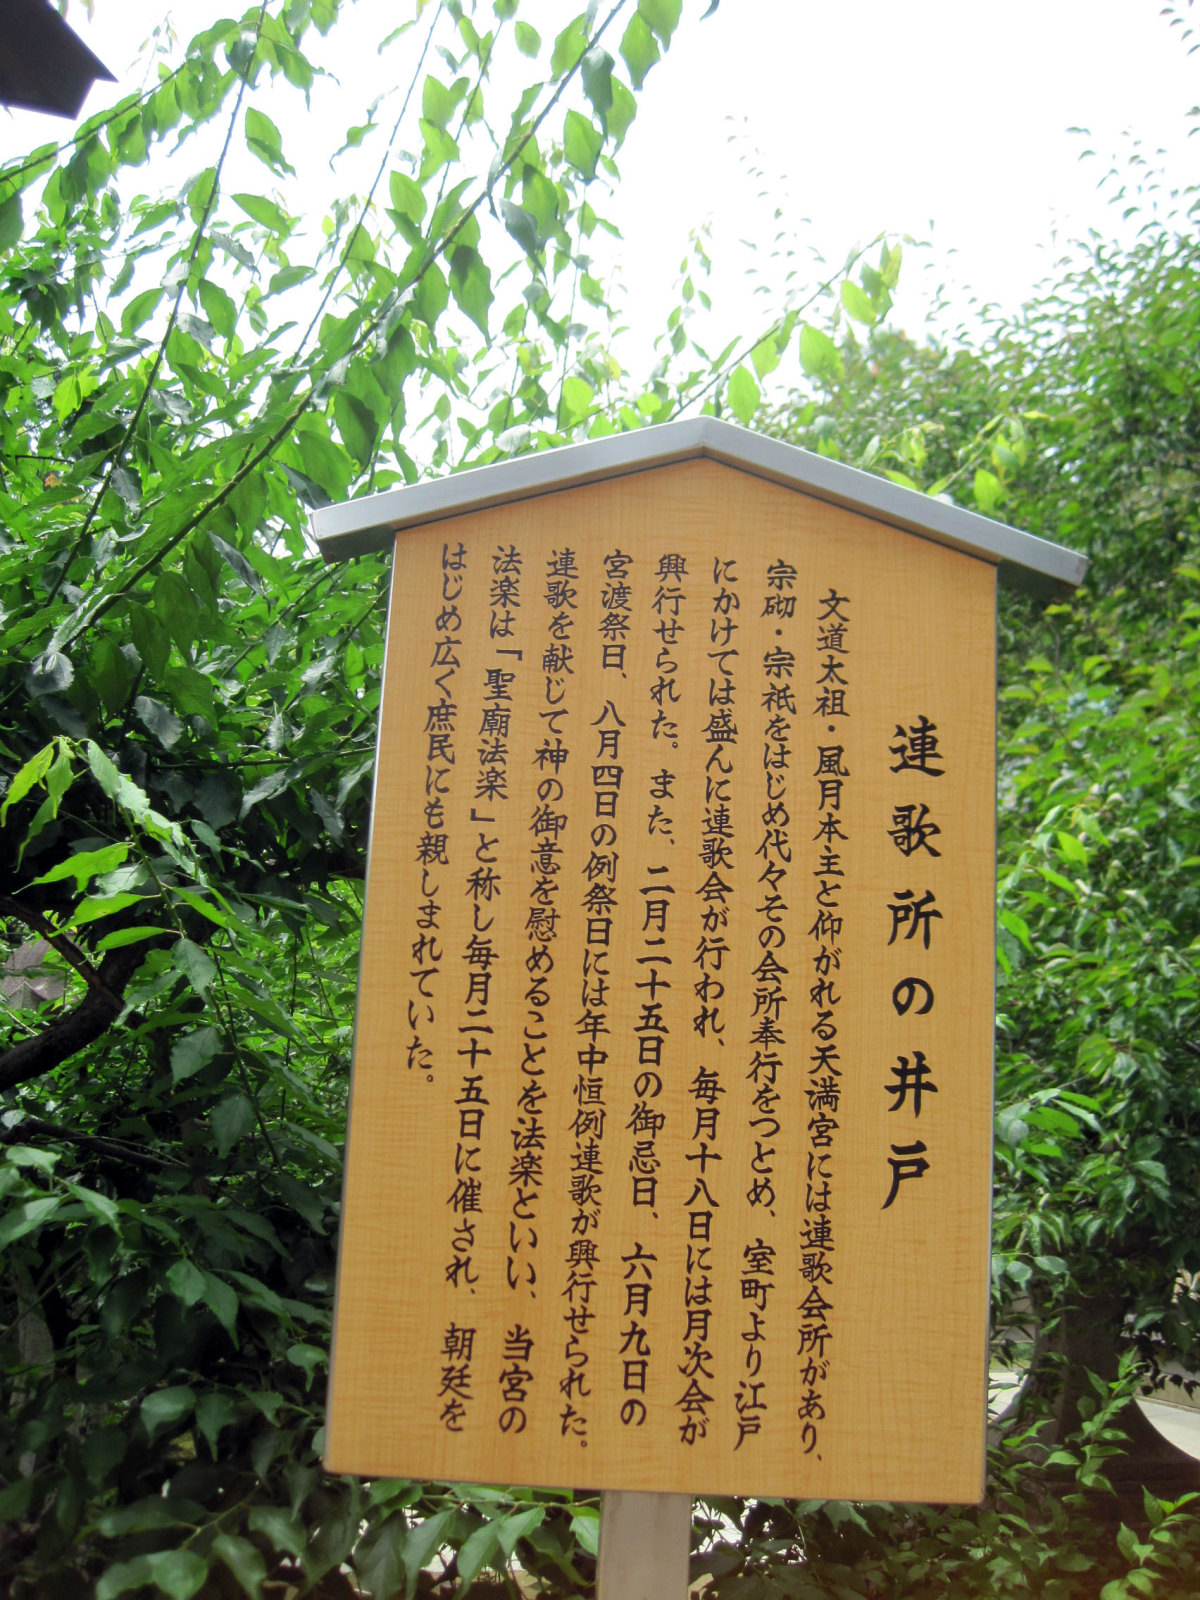 連歌所の井戸
文道太祖・風月本主と仰がれる天満宮には連歌会所があり、
宗砌・宗祇をはじめ代々その会所奉行をつとめ、室町より江戸
にかけては盛んに連歌会が行われ、毎月十八日には月次会が
興行せられた。また、二月二十五日の御忌日、六月九日の
宮渡祭日、八月四日の例祭日には年中恒例連歌が興行せられた。
連歌を献じて神の御意を慰めることを法楽といい、当宮の
法楽は「聖廟法楽」と称し毎月二十五日に催され、朝廷を
はじめ広く庶民にも親しまれていた。